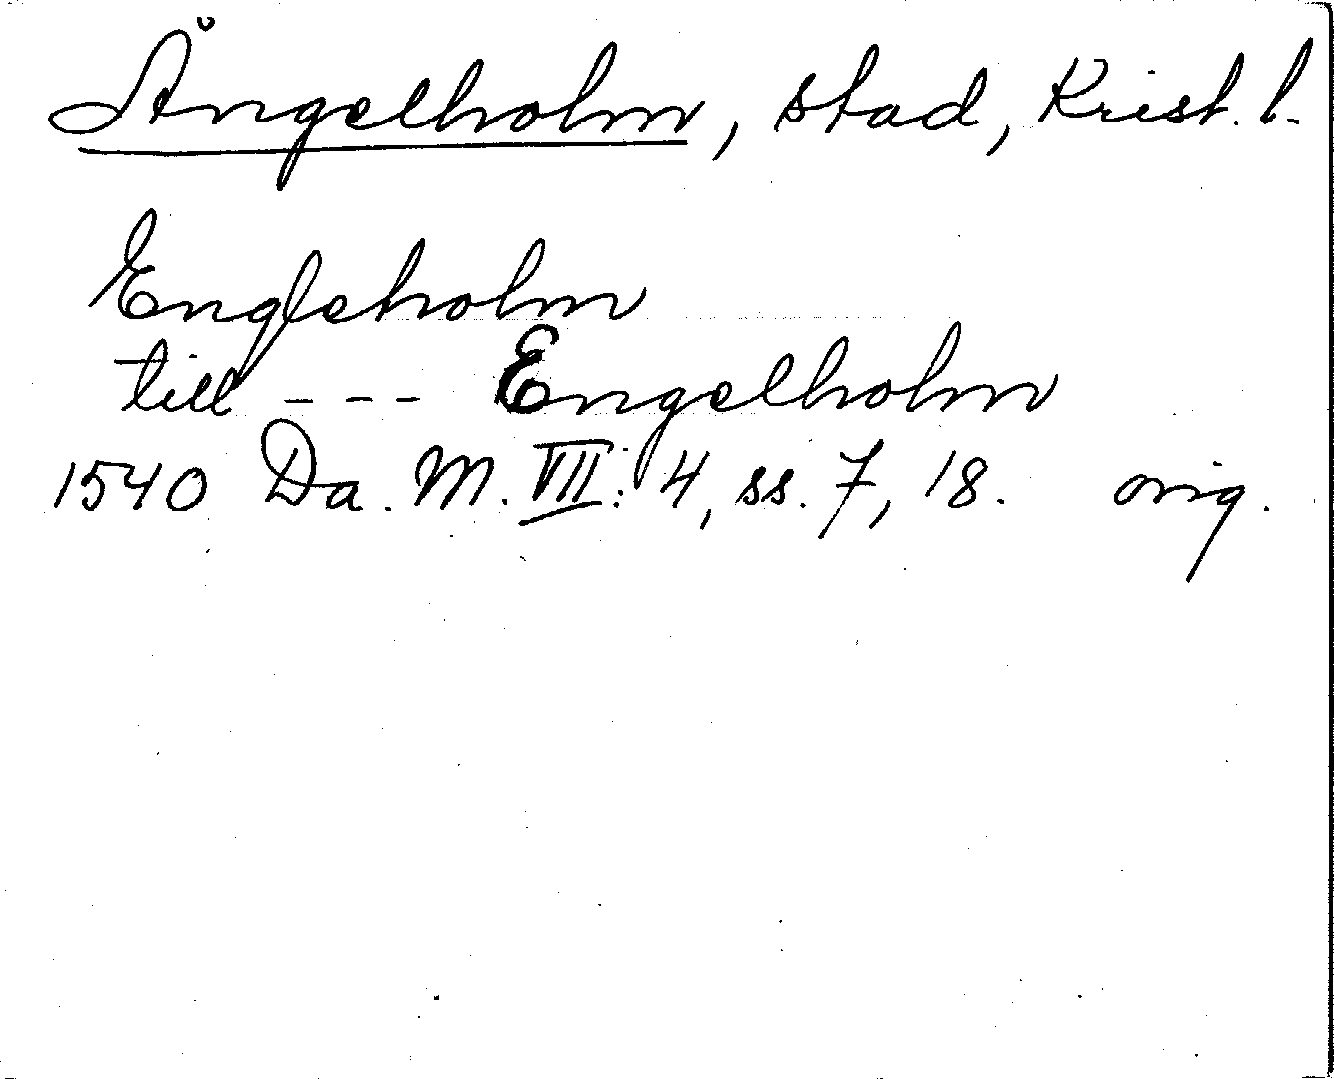 Ängelholm, stad, Krist. l.
Engleholm
till --- Engelholm
1540 Da. M. VII: 4, ss. 7, 18. orig.